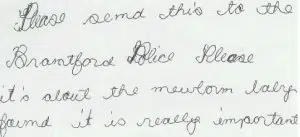 Please send this to the
Brantford Police Please
it's about the newborn baby
found it is really important